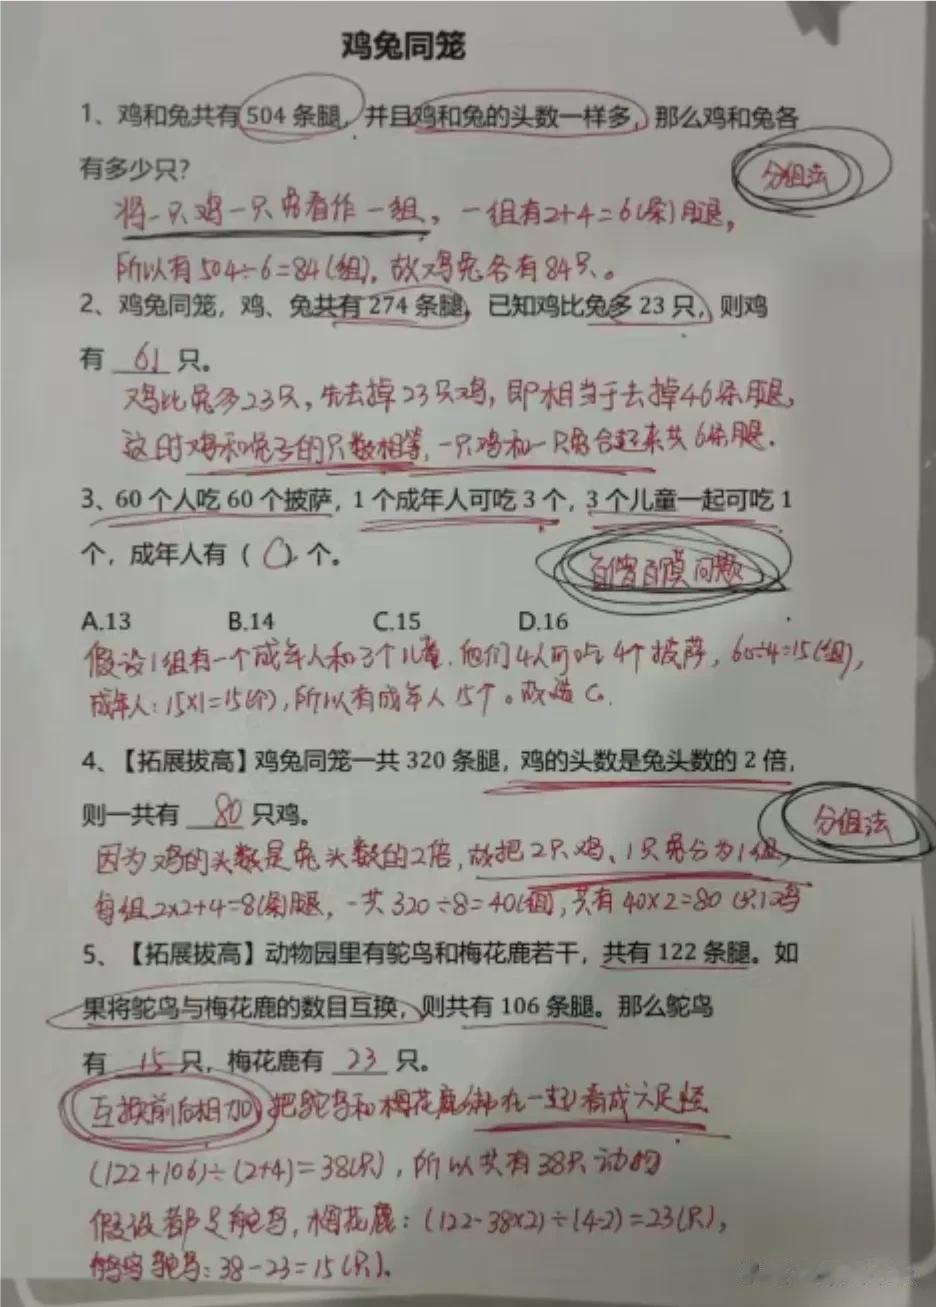 鸡兔同笼
1、鸡和兔共有 504 条腿，并且鸡和兔的头数一样多，那么鸡和兔各
有多少只？
分组法
将一只鸡一只兔看作一组，一组有2+4=6(条)腿，
所以有504÷6=84(组)，故鸡兔各有84只。
2、鸡兔同笼，鸡、兔共有 274 条腿，已知鸡比兔多 23 只，则鸡
有 61 只。
鸡比兔多23只，先去掉23只鸡，即相当于去掉46条腿，
这时鸡和兔子的只数相等，一只鸡和一只兔合起来共6条腿.
3、60 个人吃 60 个披萨，1 个成年人可吃 3 个，3 个儿童一起可吃 1
个，成年人有（ C ）个。
百僧百馍问题
A.13 B.14 C.15 D.16
假设1组有一个成年人和3个儿童，他们4人可吃4个披萨，60÷4=15(组)，
成年人：15×1=15(个)，所以有成年人15个。故选C.
4、【拓展拔高】鸡兔同笼一共 320 条腿，鸡的头数是兔头数的 2 倍，
则一共有 80 只鸡。
分组法
因为鸡的头数是兔头数的2倍，故把2只鸡、1只兔分为1组，
每组2×2+4=8(条)腿，一共320÷8=40(组)，共有40×2=80(只)鸡
5、【拓展拔高】动物园里有鸵鸟和梅花鹿若干，共有 122 条腿。如
果将鸵鸟与梅花鹿的数目互换，则共有 106 条腿。那么鸵鸟
有 15 只，梅花鹿有 23 只。
互换前后相加 把鸵鸟和梅花鹿绑在一起看成六足怪
(122+106)÷(2+4)=38(只)，所以共有38只动物
假设都是鸵鸟，梅花鹿：(122-38×2)÷(4-2)=23(只)，
鸵鸟：38-23=15(只).